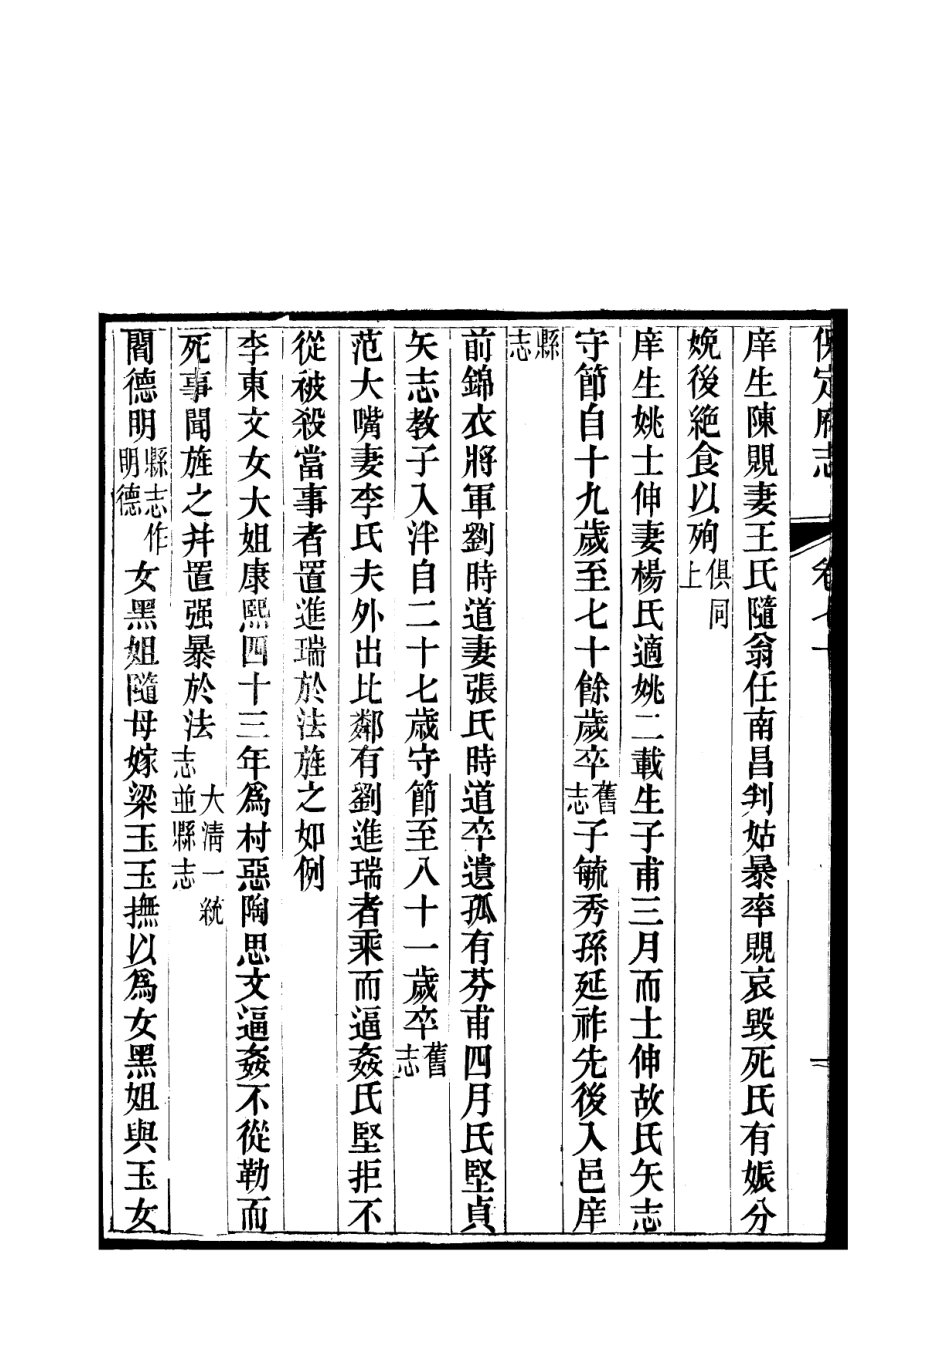 保定府志 卷七十
庠生陳覞妻王氏隨翁任南昌判姑暴率覞哀毀死氏有娠分
娩後絶食以殉俱同上
庠生姚士伸妻楊氏適姚二載生子甫三月而士伸故氏矢志
守節自十九歲至七十餘歲卒舊志子毓秀孫延祚先後入邑庠
縣志
前錦衣將軍劉時道妻張氏時道卒遺孤有芬甫四月氏堅貞
矢志教子入泮自二十七歲守節至八十一歲卒舊志
范大嘴妻李氏夫外出比鄰有劉進瑞者乘而逼姦氏堅拒不
從被殺當事者置進瑞於法旌之如例
李東文女大姐康熙四十三年爲村惡陶思文逼姦不從勒而
死事聞旌之幷置强暴於法大清一統志並縣志
閻德明縣志作明德女黑姐隨母嫁梁玉玉撫以爲女黑姐與玉女